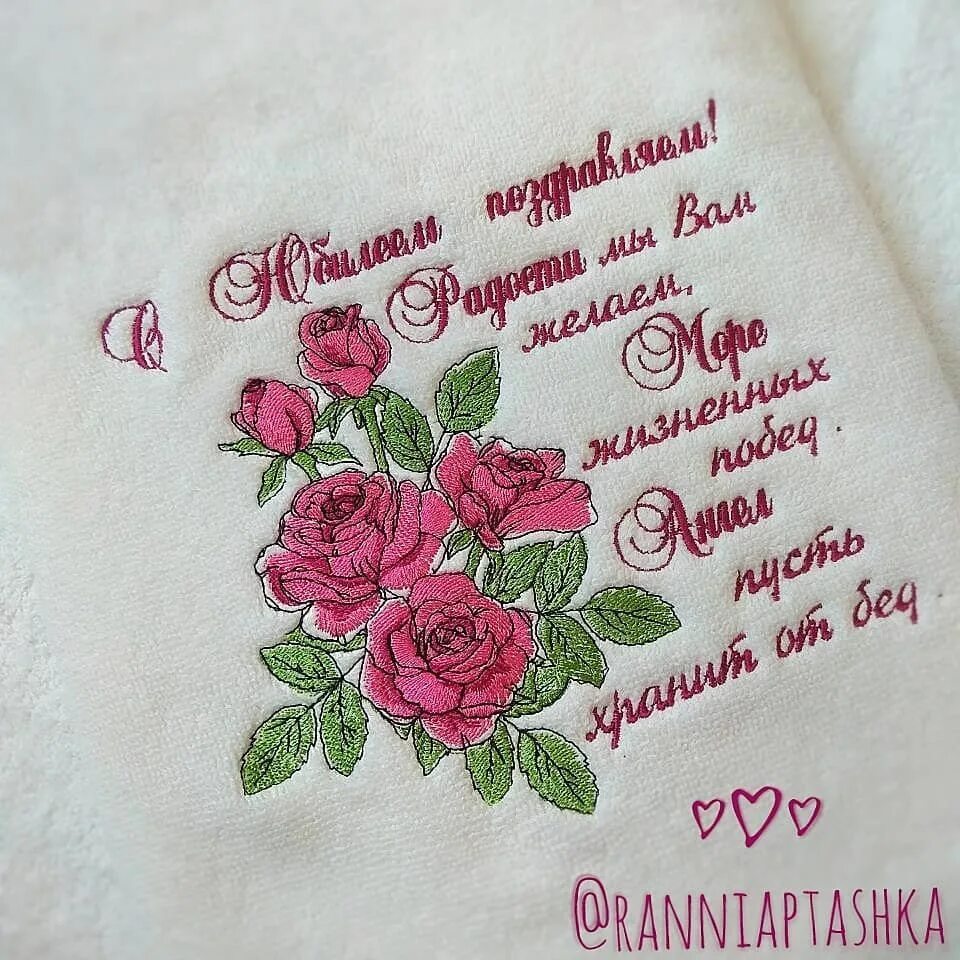 С Юбилеем поздравляем!
Радости мы Вам
желаем,
Море
жизненных
побед.
Ангел
пусть
хранит от бед.
@RANNIAPTASHKA